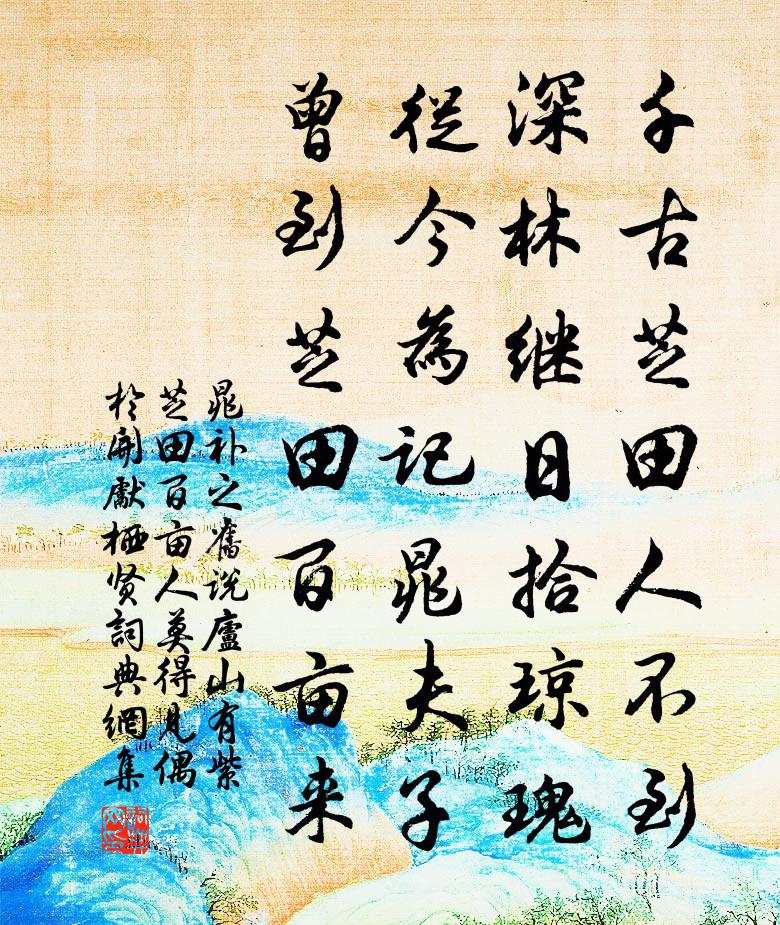 千古芝田人不到
深林继日拾琼瑰
從今為记晁夫子
曾到芝田百亩来
晁补之舊说廬山有紫
芝田百亩人莫得見偶
於開獻栖贤詞典網集